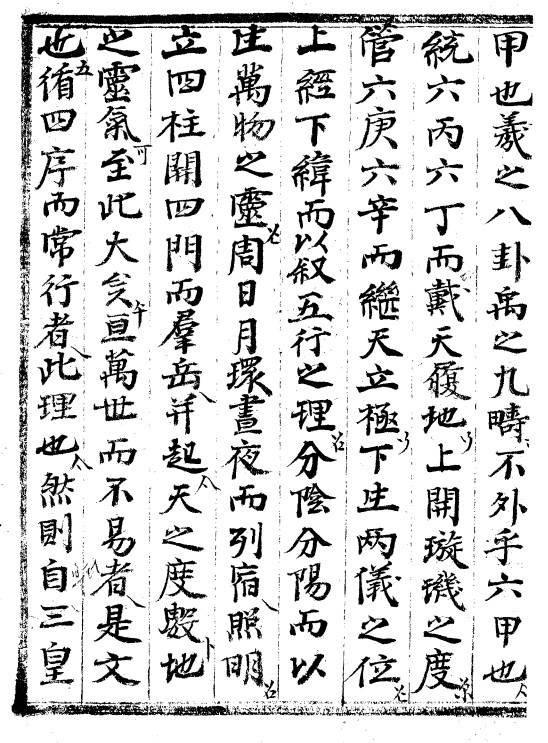 甲也羲之八卦禹之九疇不外乎六甲也
統六丙六丁而戴天履地上開璇璣之度
管六庚六辛而繼天立極下生两儀之位
上經下緯而以叙五行之理分陰分陽而以
生萬物之靈周日月環晝夜而列宿照明
立四柱開四門而羣岳并起天之度數地
之靈氣至此大矣亘萬世而不易者是文
也循四序而常行者此理也然則自三皇